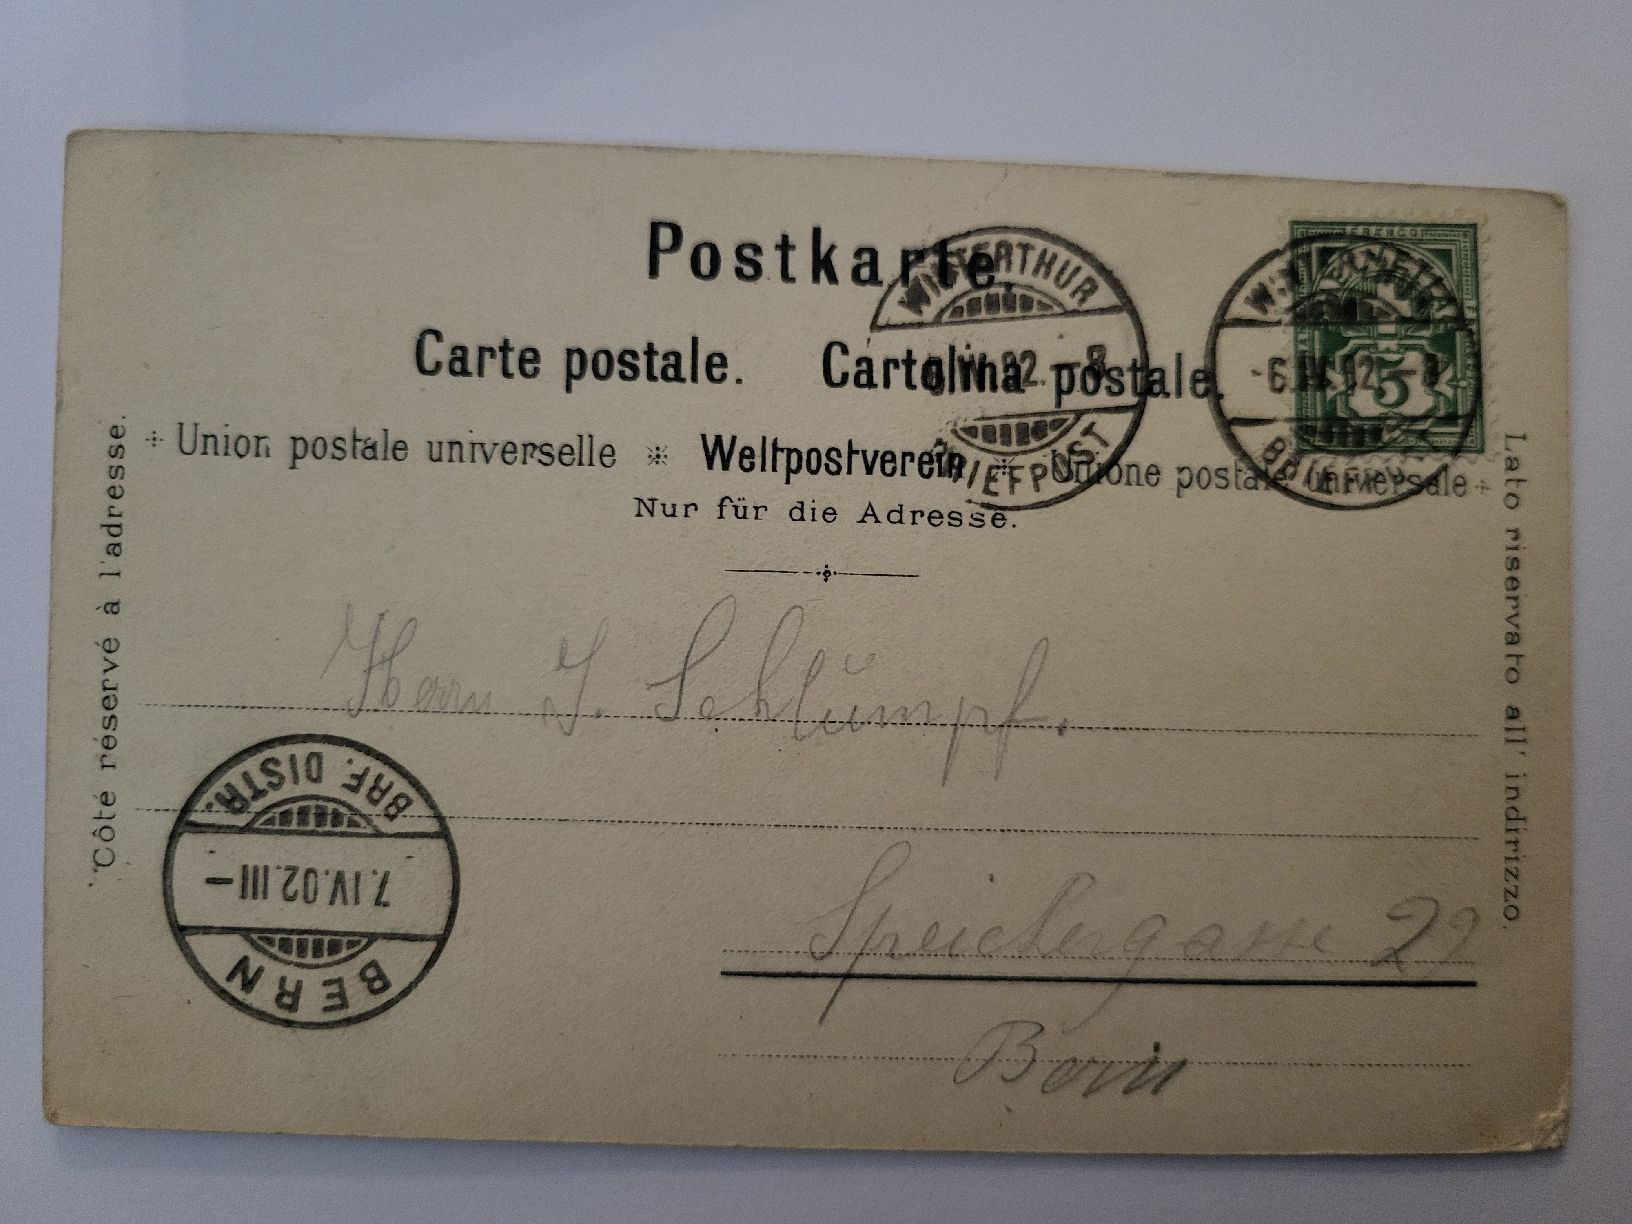 Postkarte.
Carte postale. Cartolina postale.
Union postale universelle Weltpostverein Unione postale universale
Nur für die Adresse.
Côté réservé à l'adresse.
Lato riservato all' indirizzo.
WINTERTHUR
IV.02.-8
BRIEFPOST
WINTERTHUR
-6.IV.02.-8
BRIEFPOST
FRANCO
HELVETIA
5
Herrn J. Schlümpf.
Speichergasse 29
Bern
BRF. DISTR.
7.IV.02.III-
BERN